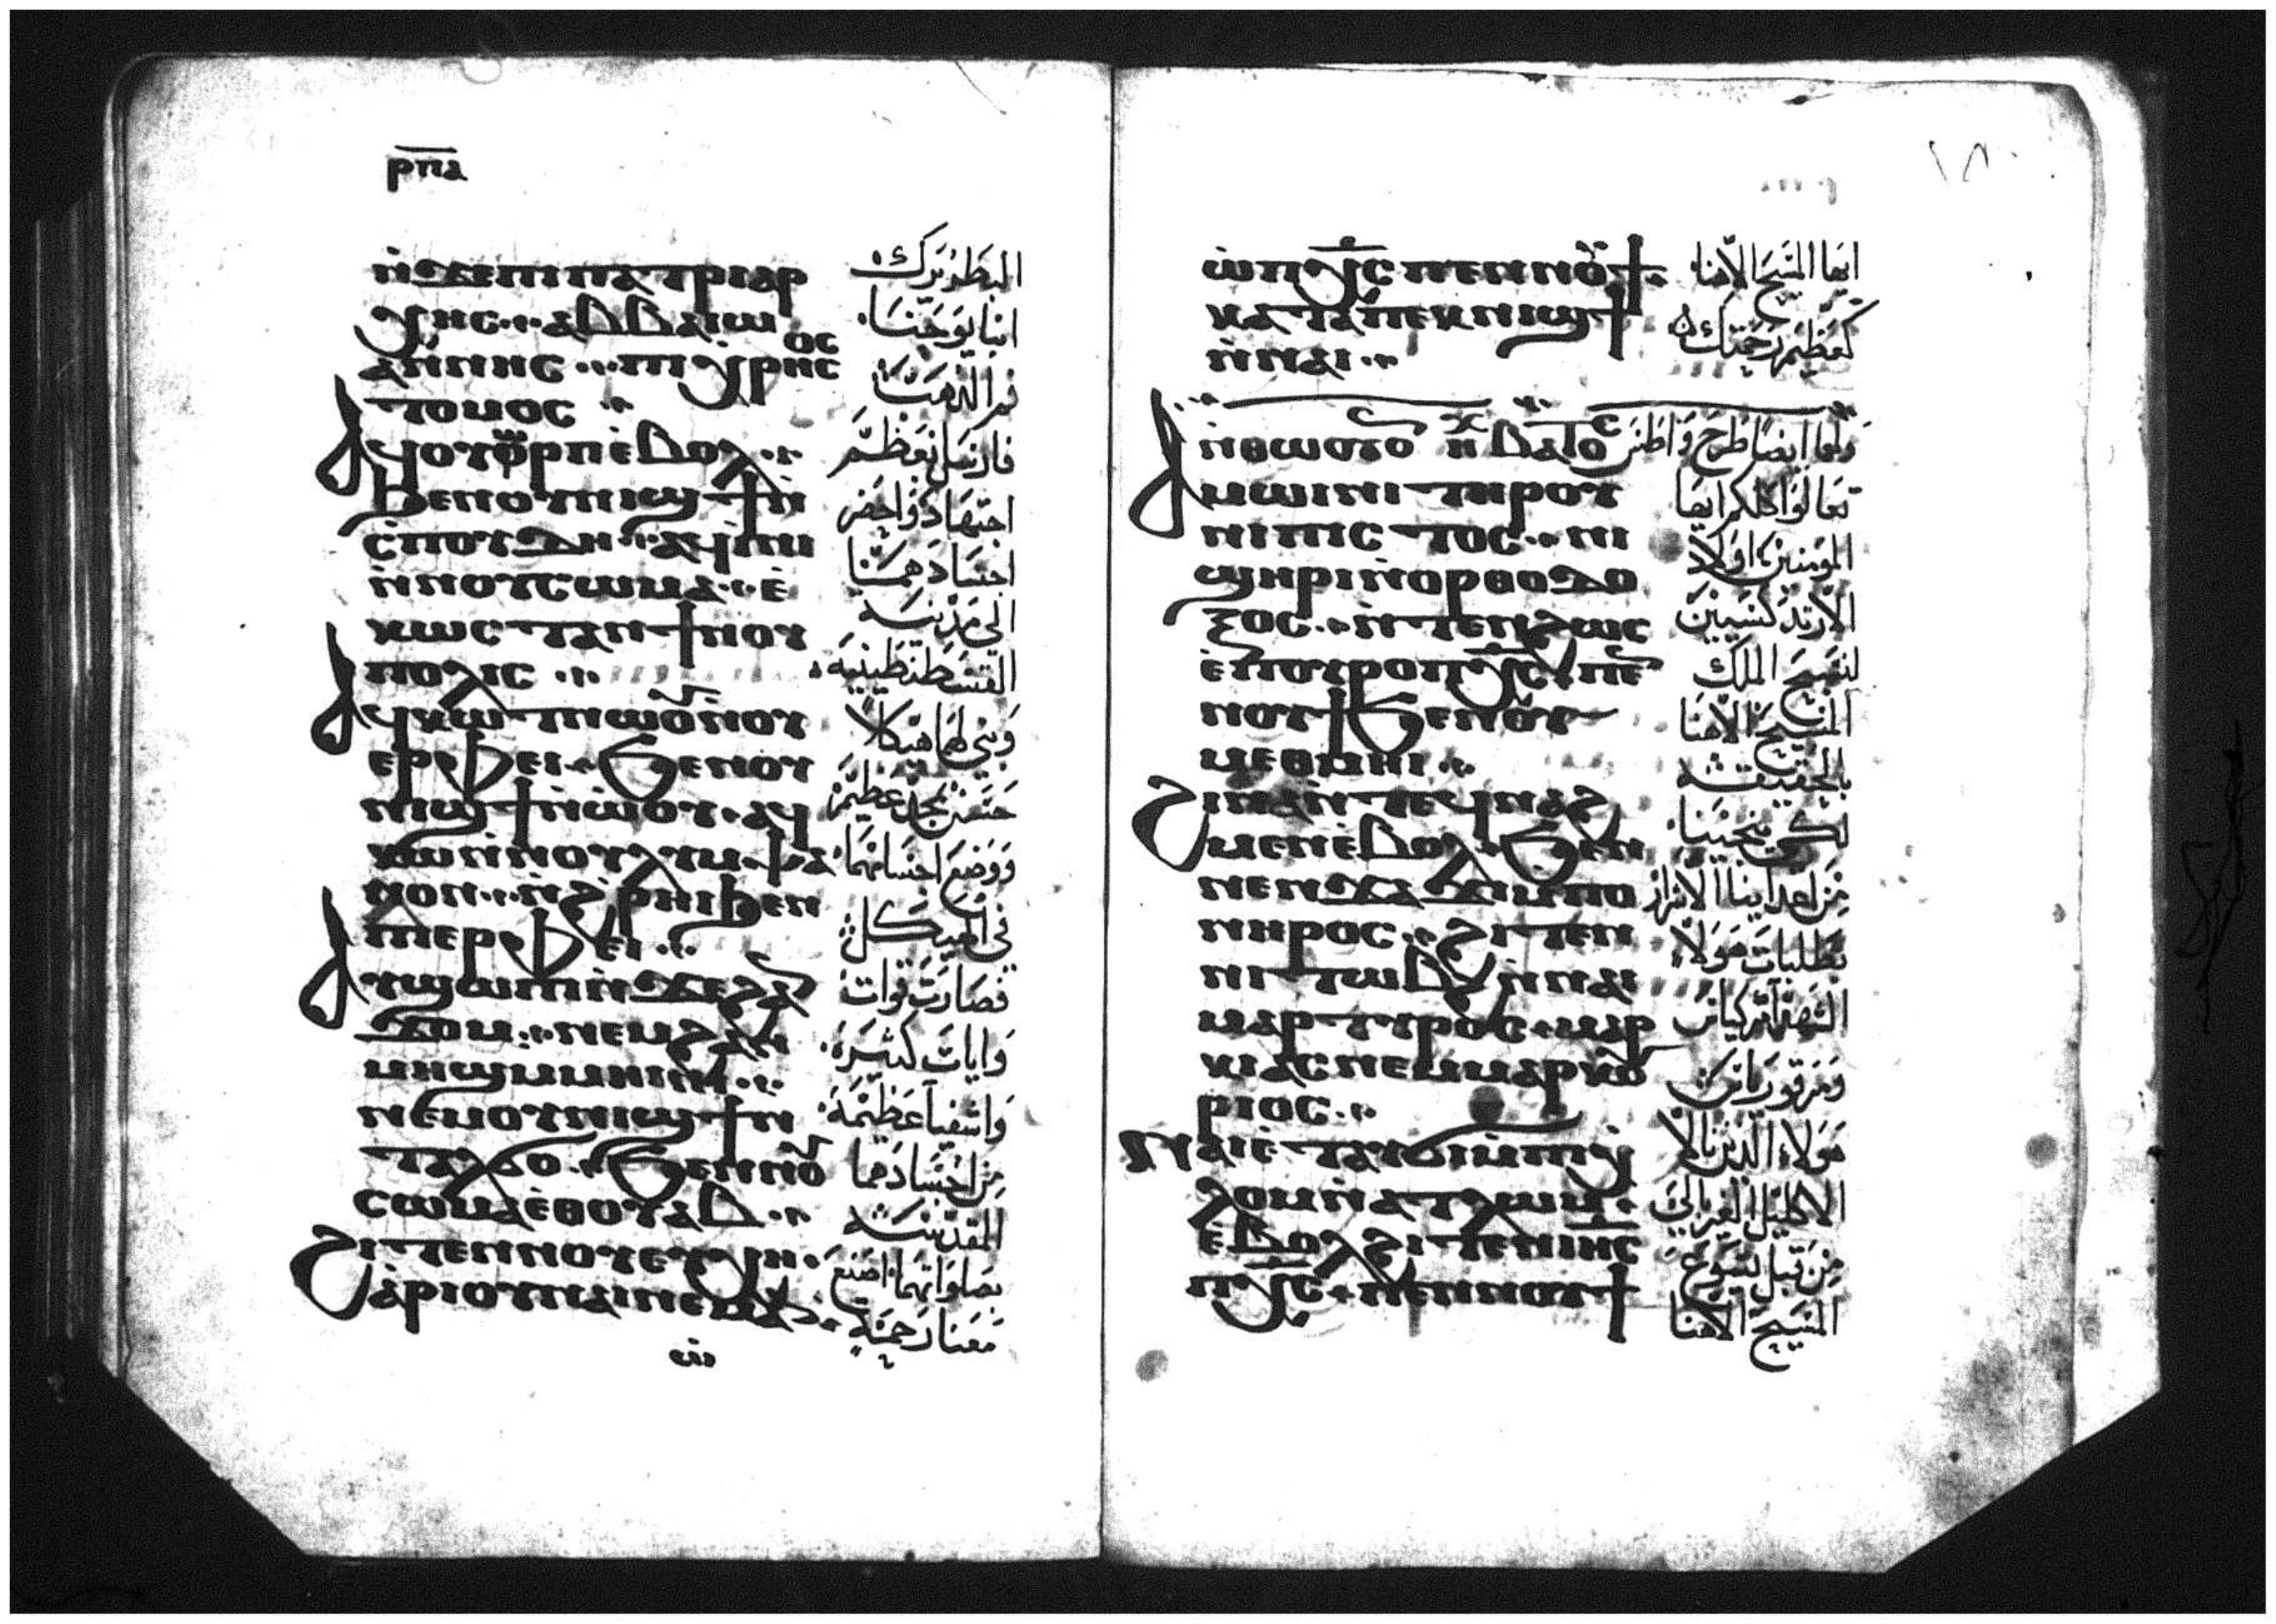 ⲣⲡⲁ
ⲛ̀ϫⲉⲡⲓⲡⲁⲧⲣⲓⲁⲣ
ⲭⲏⲥ ⲁⲃⲃⲁ ⲓⲱ
ⲁⲛⲛⲏⲥ ⲡⲓⲭⲣⲏⲥⲟⲥ
ⲧⲟⲙⲟⲥ
ⲁϥⲟⲩⲱⲣⲡ ⲉ̀ⲃⲟⲗ
ϧⲉⲛⲟⲩⲛⲓϣϯ ⲛ̀
ⲥⲡⲟⲩⲇⲏ ⲁϥⲓⲛⲓ
ⲛ̀ⲛⲟⲩⲥⲱⲙⲁ ⲉ̀
ⲕⲱⲥⲧⲁⲛϯⲛⲟⲩ
ⲡⲟⲗⲓⲥ
ⲁϥⲕⲱⲧ ⲛⲱⲟⲩ ⲛ̀ⲟⲩ
ⲉⲣⲫⲉⲓ ϧⲉⲛⲟⲩ
ⲛⲓϣϯ ⲛ̀ⲱⲟⲩ ⲁϥ
ⲭⲱ ⲛ̀ⲛⲟⲩⲗⲩⲙⲯⲁ
ⲛⲟⲛ ⲛ̀ϩⲣⲏⲓ ϧⲉⲛ
ⲡⲓⲉⲣⲫⲉⲓ
ⲁⲩϣⲱⲡⲓ ⲛ̀ϫⲉϩⲁⲛ
ϫⲟⲙ ⲛⲉⲙϩⲁⲛ
ⲙⲏϣ ⲙ̀ⲙⲏⲓⲛⲓ
ⲛⲉⲙⲟⲩⲛⲓϣϯ ⲛ̀
ⲧⲁⲗϭⲟ ϧⲉⲛⲛⲟⲩ
ⲥⲱⲙⲁ ⲉⲑⲟⲩⲁⲃ
ϩⲓⲧⲉⲛⲛⲟⲩⲉⲩⲭⲏ
ⲁⲣⲓⲟⲩⲛⲁⲓ ⲛⲉⲙⲁⲛ
البطريرك
انبا يوحنا
فم الذهب
فارسل بعظيم
اجتهاد واحضر
اجسادهما
الى مدينة
القسطنطينية
وبنى لهما هيكلا
حسن بمجد عظيم
ووضع اجسامهما
في الهيكل
فصارت قوات
وايات كثيرة
واشفيا عظيمة
من اجسادهما
المقدسة
بصلواتهما اصنع
معنا رحمة
ⲱ̀ⲡⲭⲥ ⲡⲉⲛⲛⲟⲩϯ
ⲕⲁⲧⲁ ⲡⲉⲕⲛⲓϣϯ
ⲛ̀ⲛⲁⲓ
ⲛ̀ⲑⲱⲟⲩ ⲟⲛ ⲏⲭ ⲃⲁⲧⲟⲥ
ⲁⲙⲱⲓⲛⲓ ⲧⲏⲣⲟⲩ
ⲛⲓⲡⲓⲥⲧⲟⲥ ⲛⲓ
ϣⲏⲣⲓ ⲛ̀ⲟⲣⲑⲟⲇⲟ
ⲝⲟⲥ ⲛ̀ⲧⲉⲛϩⲱⲥ
ⲉ̀ⲡⲟⲩⲣⲟ ⲡⲭⲥ ⲡⲉⲛ
ⲛⲟⲩϯ ϧⲉⲛⲟⲩ
ⲙⲉⲑⲙⲏⲓ
ϩⲓⲛⲁ ⲛ̀ⲧⲉϥⲛⲁϩ
ⲙⲉⲛ ⲉ̀ⲃⲟⲗ ϧⲉⲛ
ⲛⲉⲛϫⲁϫⲓ ⲙ̀ⲡⲟ
ⲛⲏⲣⲟⲥ ϩⲓⲧⲉⲛ
ⲛⲓⲧⲱⲃϩ ⲛ̀ⲛⲁⲓ
ⲙⲁⲣⲧⲩⲣⲟⲥ ⲙⲁⲣ
ⲕⲓⲁⲥ ⲛⲉⲙ ⲙⲁⲣⲕⲟⲩ
ⲣⲓⲟⲥ
ⲛⲁⲓ ⲉ̀ⲧⲁⲩϭⲓ ⲙ̀ⲡⲓⲭ
ⲗⲟⲙ ⲛ̀ⲁⲧⲗⲱⲙ
ⲉ̀ⲃⲟⲗ ϩⲓⲧⲉⲛ ⲓⲏⲥ
ⲡⲭⲥ ⲡⲉⲛⲛⲟⲩϯ
ايها المسيح الاهنا
كعظيم رحمتك
ولهما ايضا طرح واطس
تعالوا كلكم ايها
المومنين اولاد
الارتدكسيين
لنسبح الملك
المسيح الاهنا
بالحقيقة
لكي ينجينا
من اعداينا الاشرار
بطلبات هولاء
الشهدا مركياس
ومرقوريوس
هولاء الذين نالا
الاكليل الغير بالي
من قبل يسوع
المسيح الاهنا